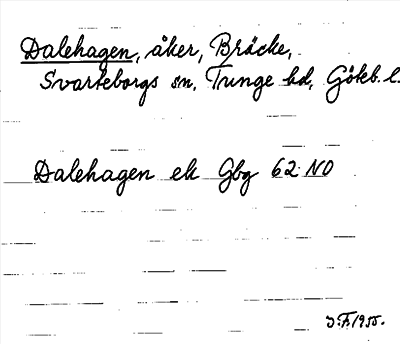 Dalehagen, åker, Bräcke,
Svarteborgs sn, Tunge hd, Göteb. l.
Dalehagen ek Gbg 62 NO
J.F. 1955.